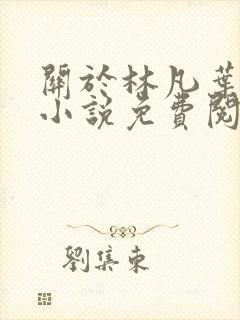 關於林凡葉
小說免費閱
劉集東